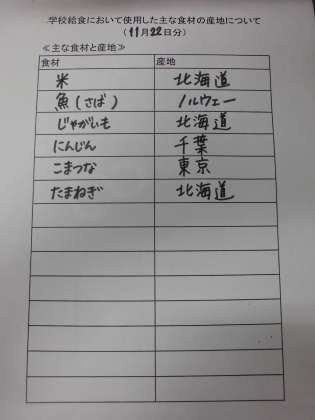 学校給食において使用した主な食材の産地について
（11月22日分）
≪主な食材と産地≫
食材 産地
米 北海道
魚(さば) ノルウェー
じゃがいも 北海道
にんじん 千葉
こまつな 東京
たまねぎ 北海道